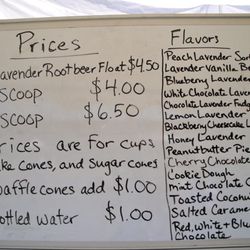 Prices
avender Rootbeer Float $4.50
SCOOP $4.00
SCOOP $6.50
rices are for cups
ke cones, and Sugar cones
affle cones add $1.00
ottled water $1.00
Flavors
Peach Lavender Sor
Lavender Vanilla Be
Blueberry Lavender
White Chocolate Laven
Chocolate Lavender Fudg
Lemon Lavender
Blackberry Cheesecake L
Honey Lavender
Peanutbutter Pie
Cherry Chocolate
Cookie Dough
Mint Chocolate
Toasted Coconut
Salted Caramel
Red, White & Blu
Chocolate